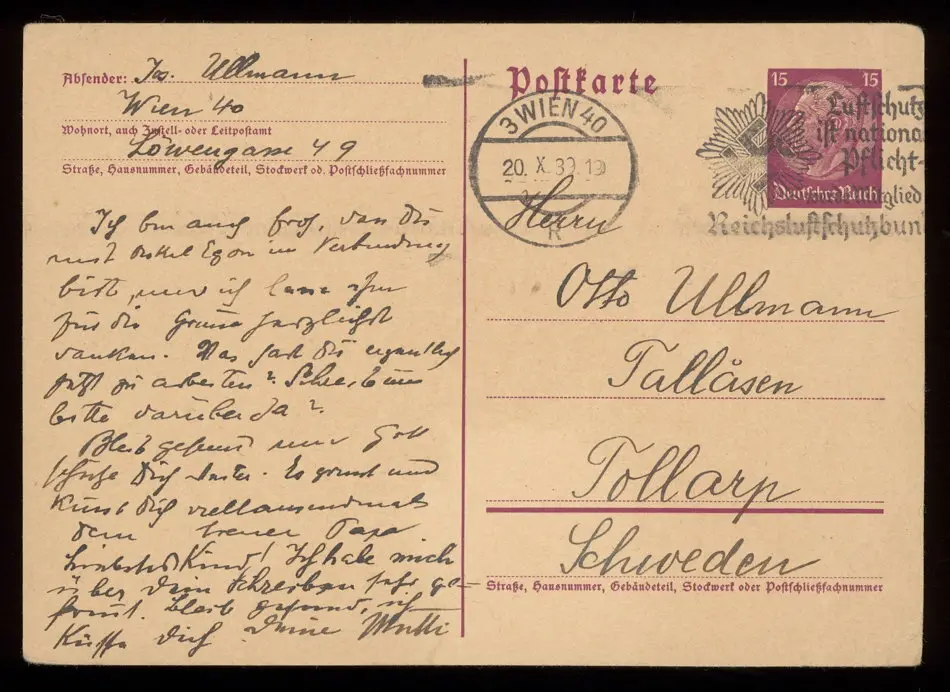 Absender: Jos. Ullmann
Wien 40
Wohnort, auch Zustell- oder Leitpostamt
Löwengasse 49
Straße, Hausnummer, Gebäudeteil, Stockwerk od. Postschließfachnummer
Ich bin auch froh, dass Du
mit Onkel Egon in Verbindung
bist, und ich lasse ihm
für die Grüsse herzlichst
danken. Was hast Du eigentlich
jetzt zu arbeiten? Schreib uns
bitte darüber ja?
Bleib gesund und Gott
schütze Dich weiter. Es grüsst und
küsst Dich vieltausendmals
Dein treuer Papa
Liebstes Kind! Ich habe mich
über Dein Schreiben sehr ge-
freut. Bleib gesund, ich
Küsse Dich Deine Mutti
Postkarte
3 WIEN 40
20. X. 39. 19
K
15 15
Deutsches Reich
Luftschutz
ist nationa
Pflicht-
Mitglied
Reichsluftschutzbun
Herrn
Otto Ullmann
Tallåsen
Tollarp
Schweden
Straße, Hausnummer, Gebäudeteil, Stockwerk oder Postschließfachnummer